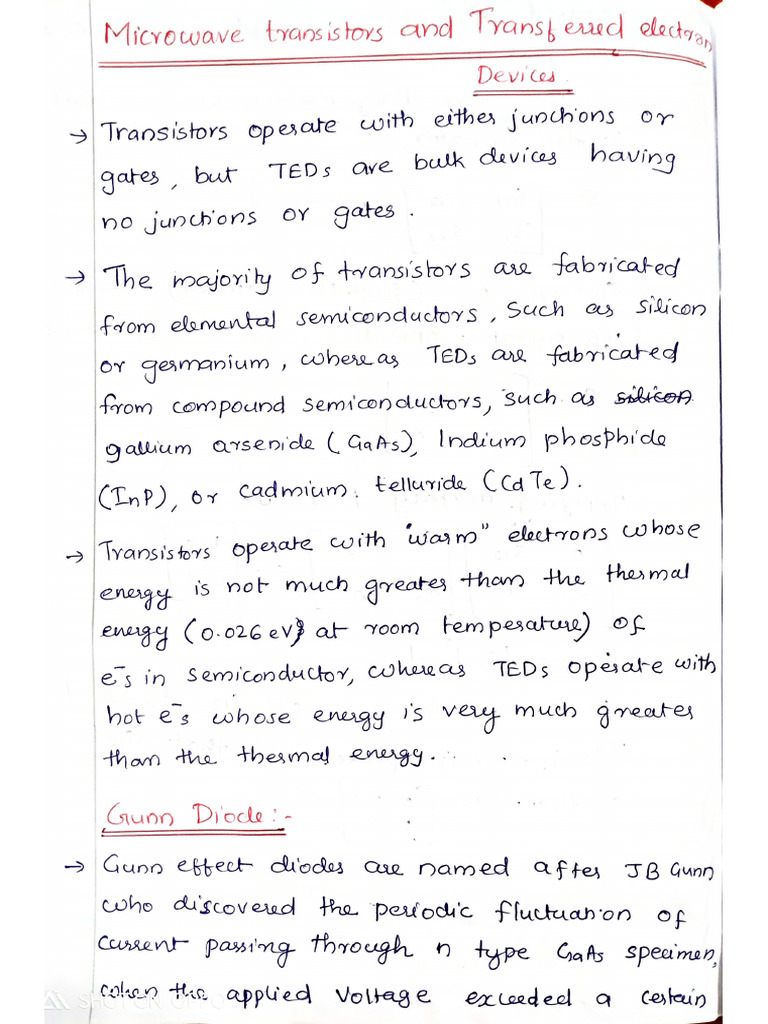 Microwave transistors and Transferred electron
Devices.
→ Transistors operate with either junctions or
gates, but TEDs are bulk devices having
no junctions or gates.
→ The majority of transistors are fabricated
from elemental semiconductors, such as silicon
or germanium, whereas TEDs are fabricated
from compound semiconductors, such as silicon
gallium arsenide (GaAs), Indium phosphide
(InP), or cadmium telluride (CdTe).
→ Transistors operate with "warm" electrons whose
energy is not much greater than the thermal
energy (0.026 eV} at room temperature) of
e⁻s in semiconductor, whereas TEDs operate with
hot e⁻s whose energy is very much greater
than the thermal energy.
Gunn Diode:-
→ Gunn effect diodes are named after JB Gunn
who discovered the periodic fluctuation of
current passing through n type GaAs specimen,
when the applied voltage exceeded a certain